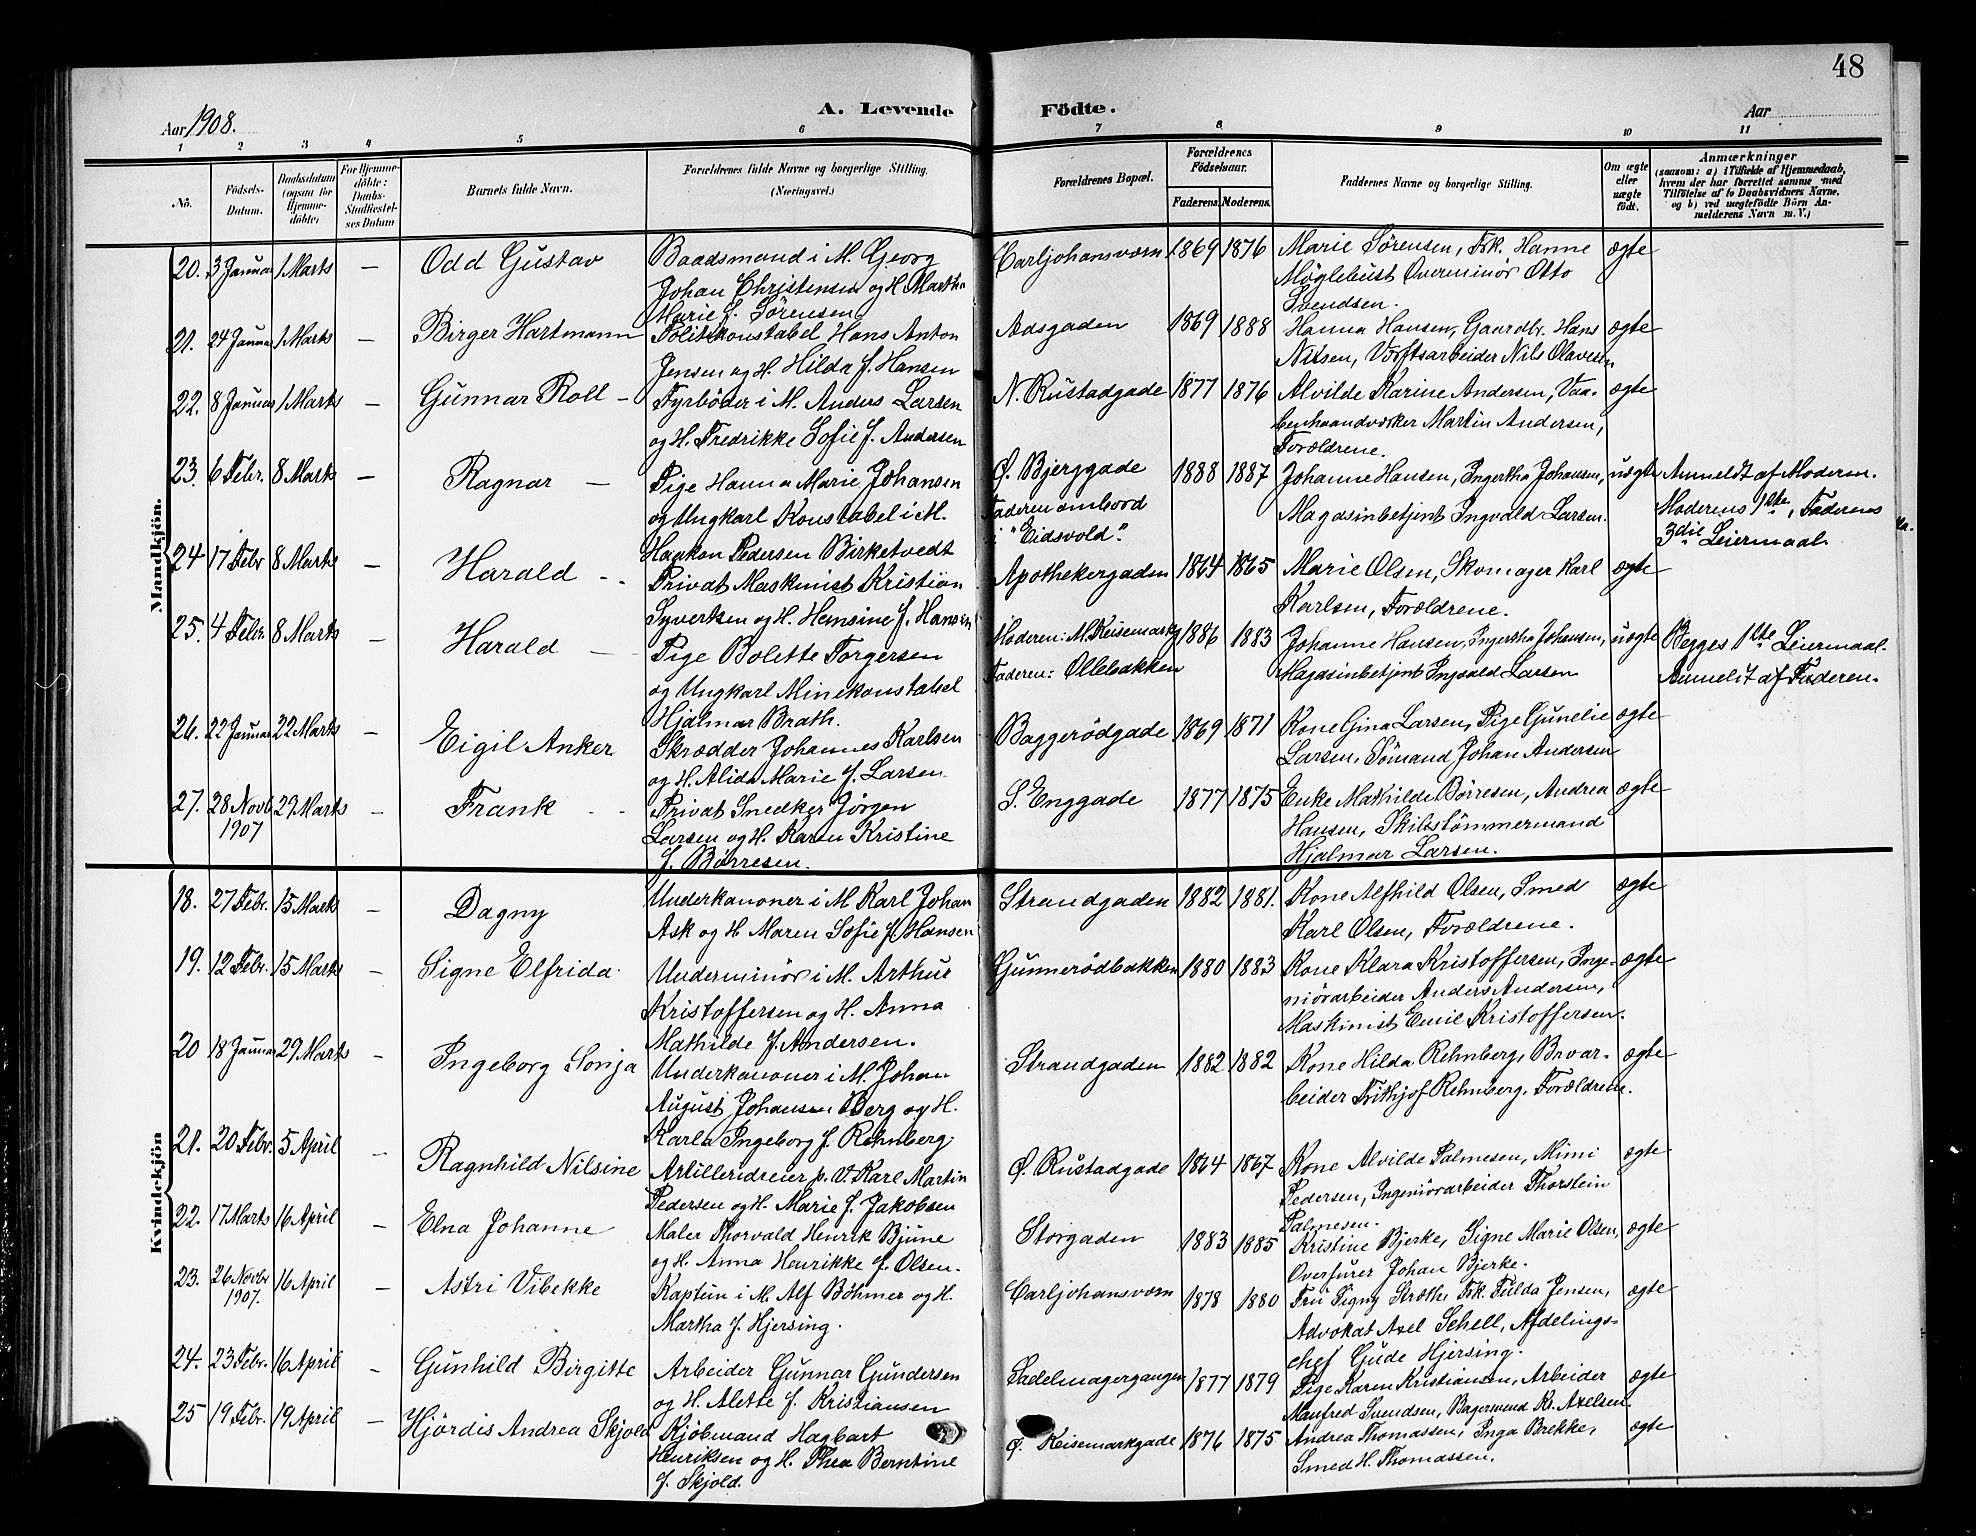 48
A. Levende Födte.
Aar 1908.
Aar
1 2 3 4 5 6 7 8 9 10 11
No.
Födsels-Datum.
Daabsdatum (ogsaa for Hjemme-döbte)
For Hjemme-döbte: Daabs-Stadfæstelses Datum
Barnets fulde Navn.
Forældrenes fulde Navne og borgerlige Stilling. (Næringsvei.)
Forældrenes Bopæl.
Forældrenes Födselsaar.
Faderens. Moderens.
Faddernes Navne og borgerlige Stilling.
Om ægte eller uægte födt.
Anmærkninger
(saasom: a) i Tilfælde af Hjemmedaab,
hvem der har forrettet samme med
Tilföielse af to Daabsvidners Navne.
og b) ved uægtefödte Börn An-
melderens Navn m. V.)
Mandkjön.
20. 3 Januar 1 Marts — Odd Gustav Baadsmand i M. Georg Carljohansværn 1869 1876 Marie Sørensen, Frk. Hanne ægte
Johan Christensen og H. Martha Møglebust Overminör Otto
Marie f. Sørensen Svendsen.
21. 24 Januar 1 Marts — Birger Hartmann Politikonstabel Hans Anton Aasgaden 1869 1888 Hanna Hansen, Gaardbr. Hans ægte
Jensen og H. Hilda f. Hansen Nilsen, Værftsarbeider Nils Olavesen
22. 8 Januar 1 Marts — Gunnar Roll — Fyrböder i M. Anders Larsen N. Rustadgade 1877 1876 Alvilde Karine Andersen, Vaa- ægte
og H. Fredrikke Sofie f. Andersen benhaandværker Martin Andersen,
Forældrene.
23. 6 Febr. 8 Marts — Ragnar — Pige Hanna Marie Johansen Ø. Bjerggade 1888 1887 Johanne Hansen, Ingertha Johansen, uægte Anmeldt af Moderen.
og Ungkarl Konstabel i M. Faderen ombord Magasinbetjent Ingvald Larsen. Moderens 1ste, Faderens
Haakon Pedersen Birketvedt i "Eidsvold". 3die Leiermaal.
24 17 Febr 8 Marts — Harald Privat Maskinist Kristian Apothekergaden 1864 1865 Marie Olsen, Skomager Karl ægte
Syvertsen og H. Hemsine f. Hansen Karlsen, Forældrene.
25. 4 Febr. 8 Marts — Harald — Pige Bolette Torgersen Moderen: M. Keisemarkg 1886 1883 Johanne Hansen, Ingertha Johansen, uægte Begges 1ste Leiermaal.
og Ungkarl Minekonstabel Faderen: Ollebakken Magasinbetjent Ingvald Larsen Anmeldt af Faderen.
Hjalmar Brath.
26. 22 Januar 22 Marts — Eigil Anker Skrædder Johannes Karlsen Baggerödgade 1869 1871 Kone Gina Larsen, Pige Gunelie ægte
og H. Alida Marie f. Larsen Larsen, Sömand Johan Andersen
27. 28 Novb. 1907 29 Marts — Frank Privat Snedker Jörgen S. Enggade 1877 1875 Enke Mathilde Børresen, Andrea ægte
Larsen og H. Karen Kristine Hansen, Skibstömmermand
f. Børresen. Hjalmar Larsen.
Kvindekjön
18. 27 Febr. 15 Marts — Dagny Underkanoner i M Karl Johan Strandgaden 1882 1881. Kone Alfhild Olsen, Smed ægte
Ask og H Maren Sofie f. Hansen Karl Olsen, Forældrene.
19. 12 Febr. 15 Marts — Signe Elfrida. Underminör i M. Arthur Gunnerödbakken 1880 1883 Kone Klara Kristoffersen, Inge- ægte
Kristoffersen og H. Anna niörarbeider Anders Andersen,
Mathilde f. Andersen. Maskinist Emil Kristoffersen.
20 18 Januar 29 Marts — Ingeborg Sonja Underkanoner i M. Johan Strandgaden 1882 1882 Kone Hilda Rehnberg, Brar- ægte
August Johansen Berg og H. beider Frithjof Rehnberg, Forældrene.
Karla Ingeborg f. Rehnberg.
21. 20 Febr. 5 April — Ragnhild Nilsine Artilleridreier p. V. Karl Martin Ø. Rustadgade 1864 1867 Kone Alvilde Palmesen, Mimi ægte
Pedersen og H. Marie f. Jakobsen Pedersen, Ingeniörarbeider Thorstein
Palmesen.
22. 17 Marts 16 April — Elna Johanne Maler Thorvald Henrik Bjune Storgaden 1883 1885 Kristine Bjerke, Signe Marie Olsen, ægte
og H. Anna Henrikke f. Olsen. Overfurer Johan Bjerke.
23. 26 Novbr 1907. 16 April — Astri Vibekke Kaptein i M. Alf Böhmer og H. Carljohansværn 1878 1880 Fru Signy Frk. Fulda Jensen, ægte
Martha f. Hjersing. Advokat Axel Schell, Afdelings-
chef Gude Hjersing.
24. 23 Febr. 16 April — Gunhild Birgitte Arbeider Gunnar Gundersen Sadelmagergangen 1877 1879 Pige Karen Kristiansen, Arbeider ægte
og H. Alette f. Kristiansen Manfred Svendsen, Bagersvend Kr. Axelsen
25 19 Febr. 19 April — Hjördis Andrea Skjold Kjöbmand Hagbart Ø. Keisemarkgade 1876 1875 Andrea Thomassen, Inga Brekke, ægte
Henriksen og H. Thea Berntine Smed H. Thomassen.
f. Skjold.